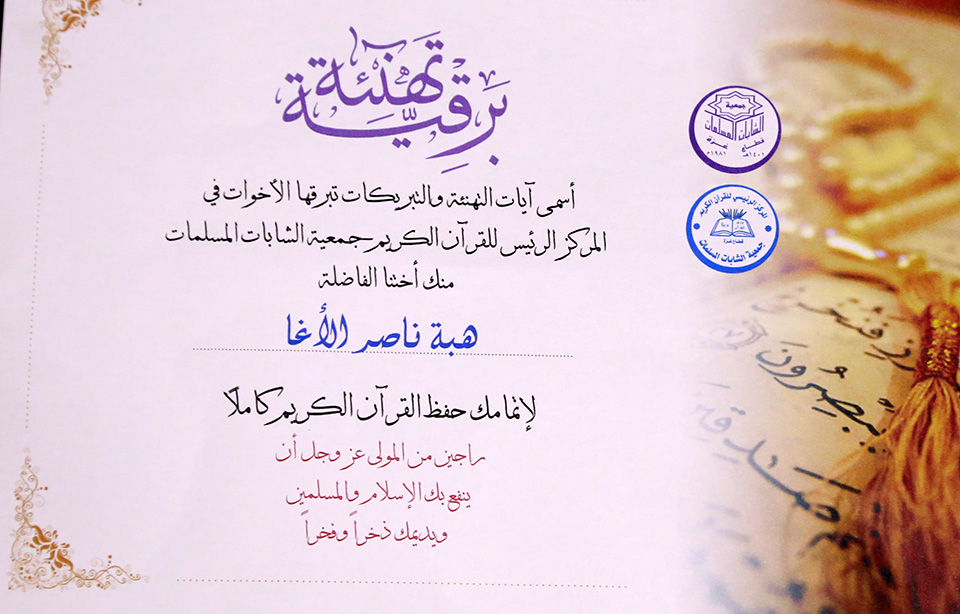 برقية تهنئة
أسمى آيات التهنئة والتبريكات تبرقها الأخوات في
المركز الرئيس للقرآن الكريم - جمعية الشابات المسلمات
منك أختنا الفاضلة
هبة ناصر الأغا
لإتمامك حفظ القرآن الكريم كاملًا
راجين من المولى عز وجل أن
ينفع بك الإسلام والمسلمين
ويديمك ذخراً وفخراً
جمعية
الشابات المسلمات
قطاع غزة
١٤٠١هـ ١٩٨١م
المركز الرئيسي للقرآن الكريم
قطاع غزة
جمعية الشابات المسلمات
يبصرون